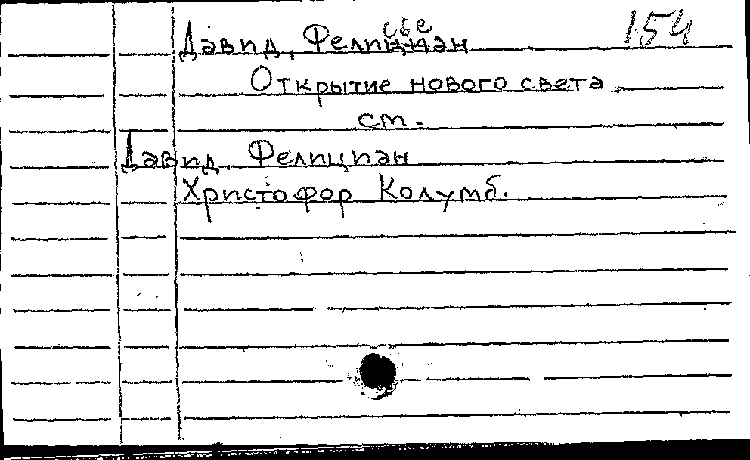 154
Давид, Фелициан
Открытие нового света
см.
Давид, Фелициан
Христофор Колумб.